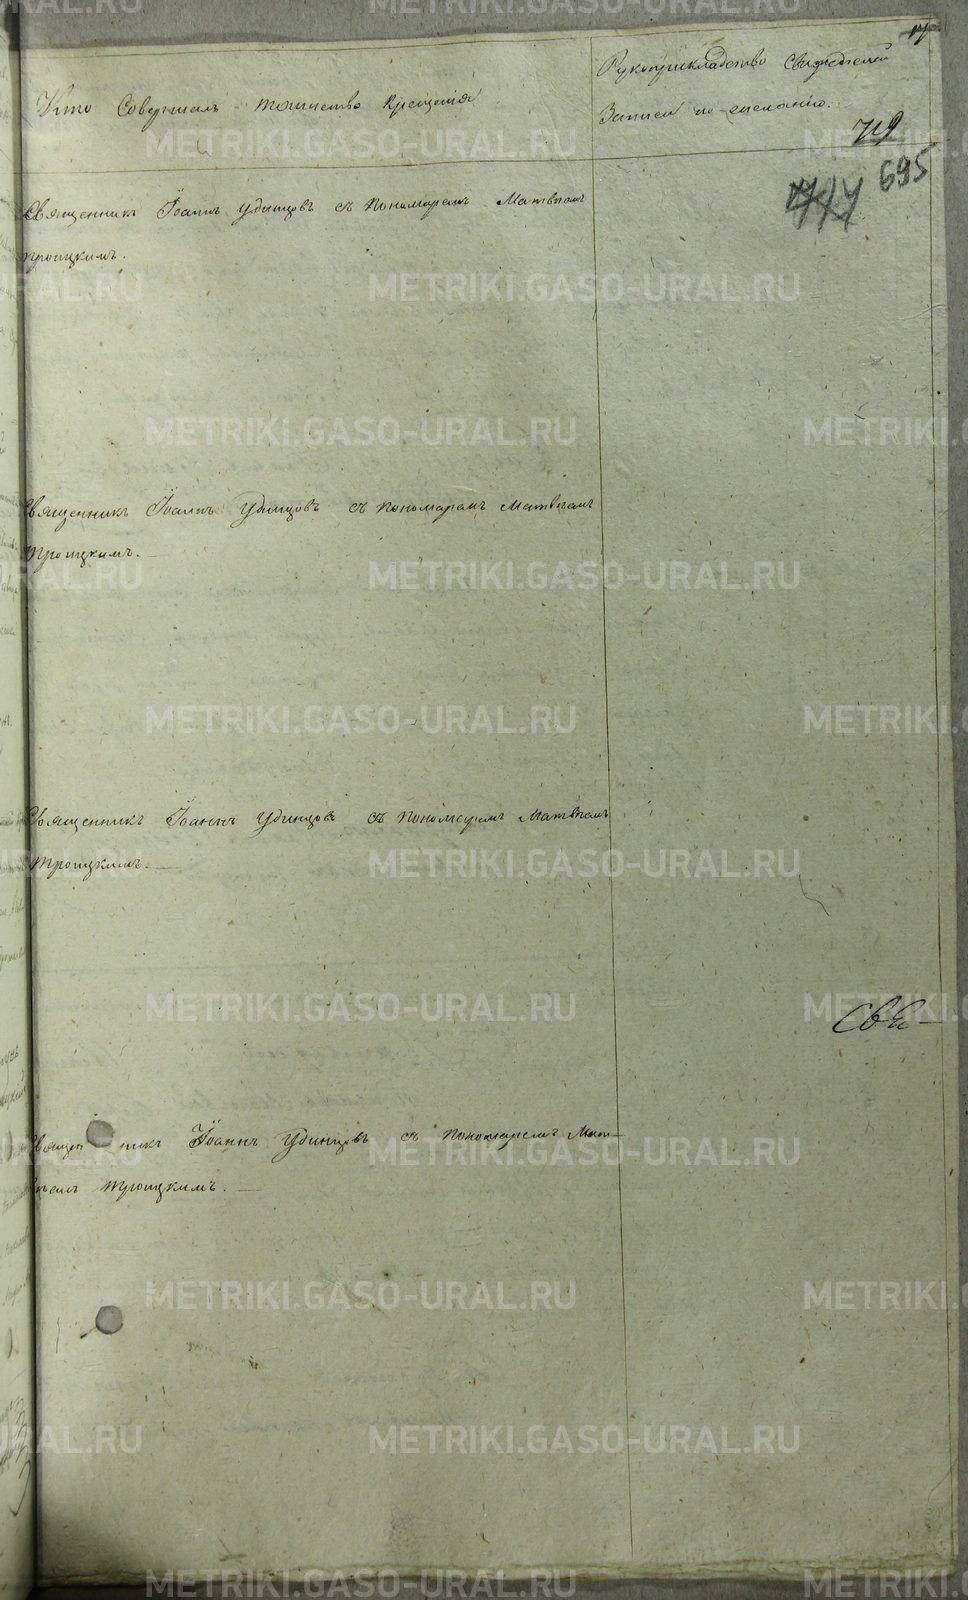 17
Кто Совершалъ таинство крещенія
Рукоприкладство Свидѣтелей
Записи по желанію.
719
695
Священникъ Іоаннъ Удинцовъ съ пономаремъ Матвѣемъ
Троицкимъ.
Священникъ Іоаннъ Удинцовъ съ пономаремъ Матвѣемъ
Троицкимъ.
Священникъ Іоаннъ Удинцовъ съ пономаремъ Матвѣемъ
Троицкимъ.
Свя-
Священникъ Іоаннъ Удинцовъ съ пономаремъ Мат-
вѣемъ Троицкимъ.
METRIKI.GASO-URAL.RU